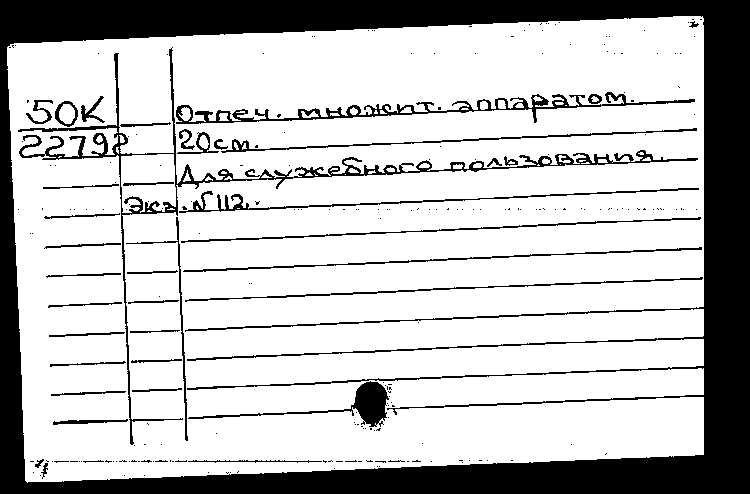 50К
22792
Отпеч. множит. аппаратом.
20см.
Для служебного пользования.
Экз. № 112.